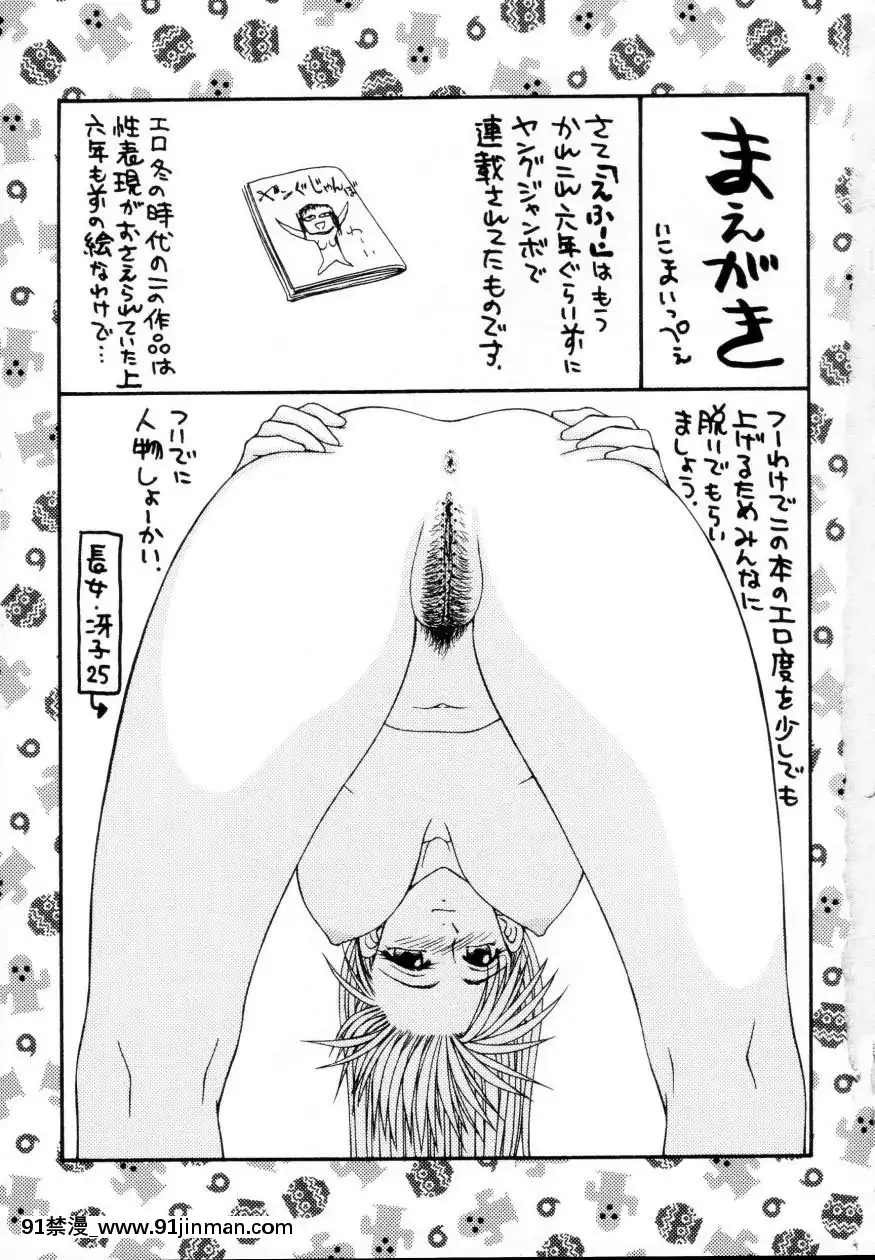 まえがき
いこまいっぺえ
さて「えふ～」はもう
かれこれ六年ぐらい前に
ヤングジャンボで
連載されてたものです.
ヤングじゃんぼ
エロ冬の時代のこの作品は
性表現がおさえられていた上
六年も前の絵なわけで…
つーわけでこの本のエロ度を少しでも
上げるためみんなに
脱いでもらい
ましょう.
ついでに
人物しょーかい.
長女・冴子25
91禁漫_www.91jinman.com